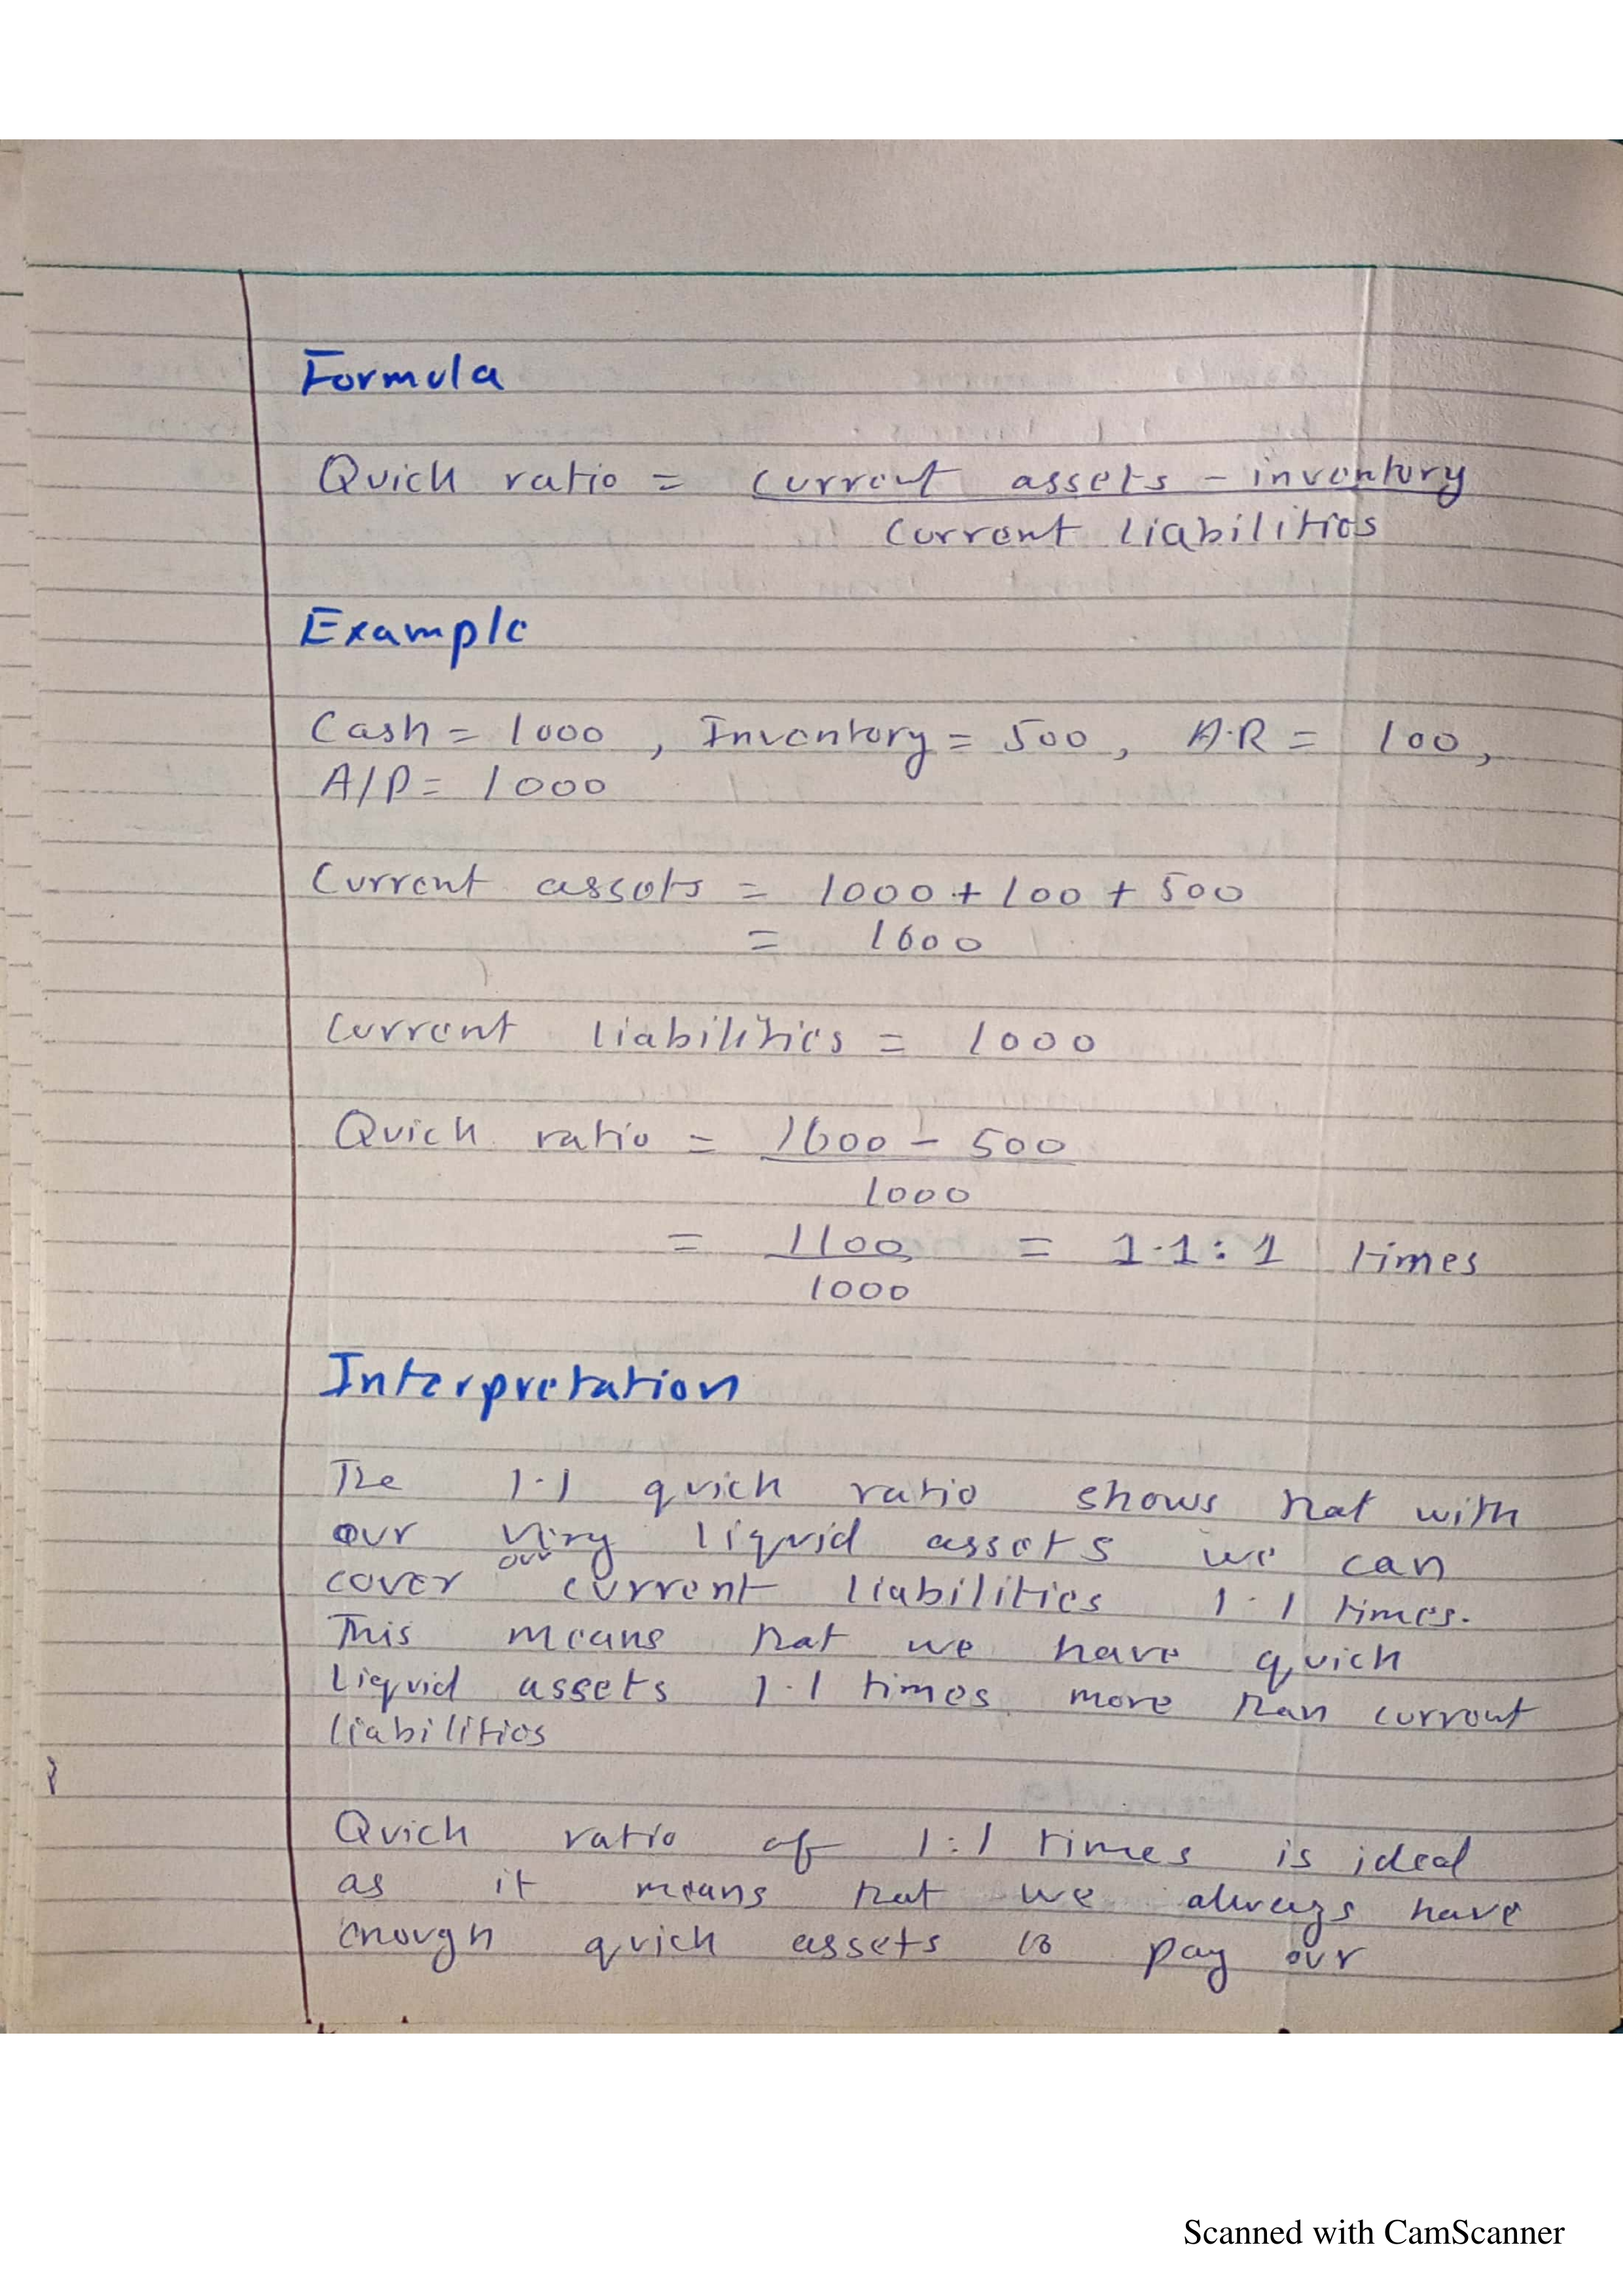 Formula
Quick ratio = current assets - inventory
current liabilities
Example
Cash = 1000 , Inventory = 500 , A.R = 100,
A/P = 1000
Current assets = 1000 + 100 + 500
= 1600
Current liabilities = 1000
Quick ratio = 1600 - 500
1000
= 1100 = 1.1 : 1 times
1000
Interpretation
The 1.1 quick ratio shows that with
our very liquid assets we can
cover our current liabilities 1.1 times.
This means that we have quick
liquid assets 1.1 times more than current
liabilities
Quick ratio of 1:1 times is ideal
as it means that we always have
enough quick assets to pay our
Scanned with CamScanner